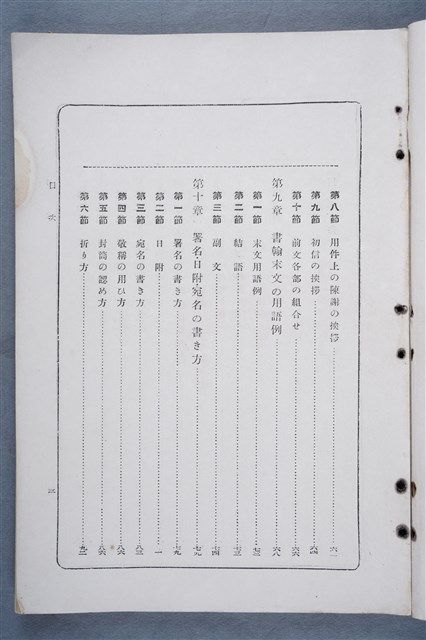 第八節　用件上の陳謝の挨拶……六一
第九節　初信の挨拶……六四
第十節　前文各部の組合せ……六六
第九章　書翰末文の用語例……六八
第一節　末文用語例……七三
第二節　結語……七三
第三節　副文……七四
第十章　署名日附宛名の書き方……七九
第一節　署名の書き方……七九
第二節　日附
第三節　宛名の書き方……八三
第四節　敬称の用ひ方……八六
第五節　封筒の認め方……八六
第六節　折り方……九二
目次